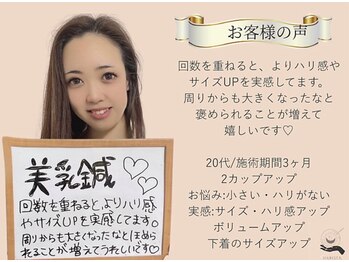 お客様の声
回数を重ねると、よりハリ感や
サイズUPを実感してます。
周りからも大きくなったなと
褒められることが増えて
嬉しいです♡
20代/施術期間3ヶ月
2カップアップ
お悩み:小さい・ハリがない
実感:サイズ・ハリ感アップ
ボリュームアップ
下着のサイズアップ
美乳鍼♡♡
回数を重ねると、よりハリ感
やサイズUPを実感してます。
周りからも大きくなったなとほめら
れることが増えてうれしいです♡